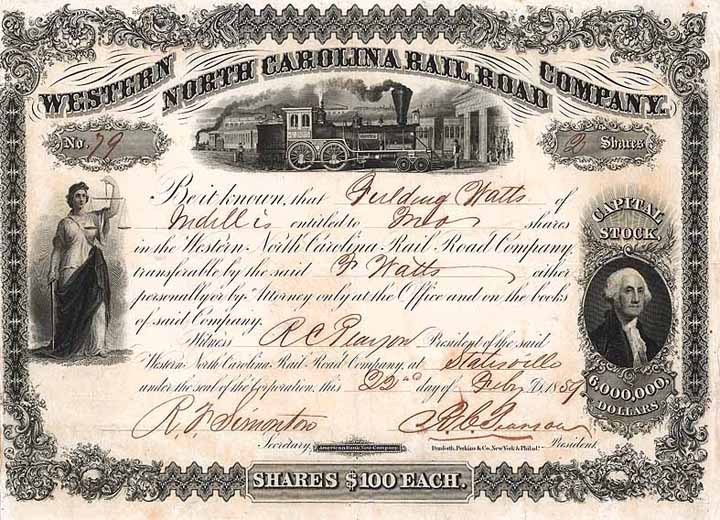 WESTERN NORTH CAROLINA RAIL ROAD COMPANY.
No. 79 2 Shares
Be it known, that Fielding Watts of
is entitled to Two shares
in the Western North Carolina Rail Road Company,
transferable by the said F Watts either
personally or by Attorney only at the Office and on the books
of said Company.
Witness R C Pearson President of the said
Western North Carolina Rail Road Company, at Statesville
under the seal of the Corporation, this 22nd day of Feby 1859
R. F. Simonton R. C. Pearson
Secretary. American Bank Note Company. Danforth, Perkins & Co. New York & Philad.ª President.
CAPITAL
STOCK.
6,000,000.
DOLLARS.
SHARES $100 EACH.